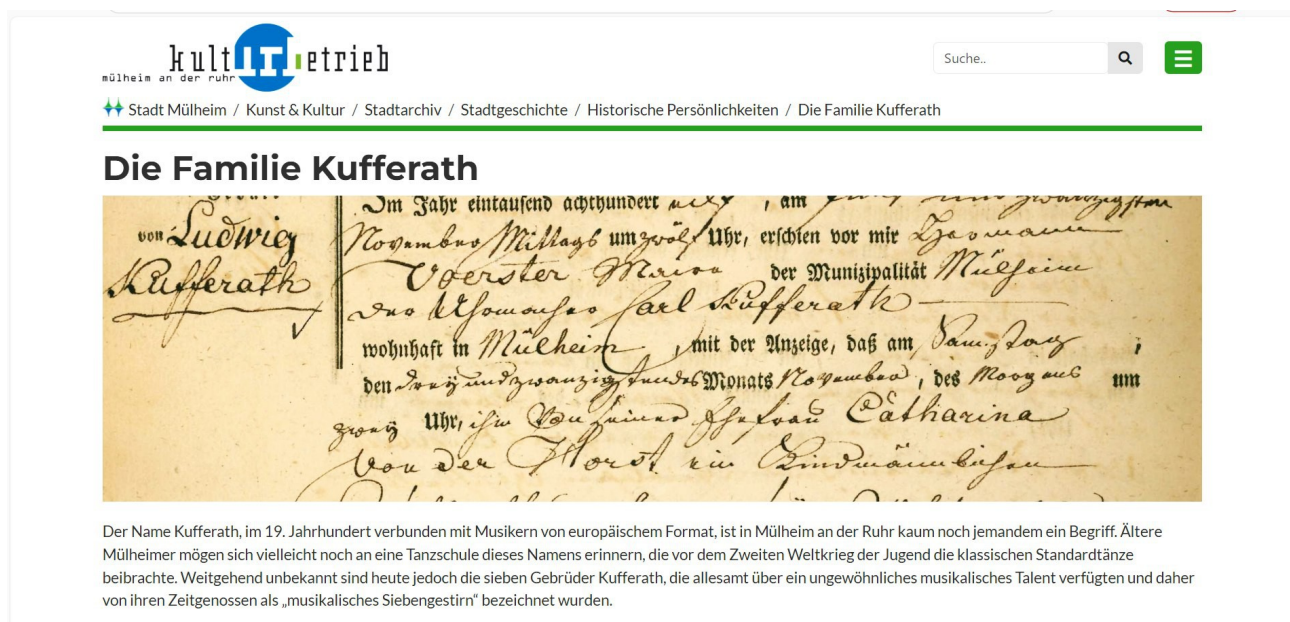 kultITbetrieb
mülheim an der ruhr
Suche..
Stadt Mülheim / Kunst & Kultur / Stadtarchiv / Stadtgeschichte / Historische Persönlichkeiten / Die Familie Kufferath
Die Familie Kufferath
Im Jahr eintausend achthundert eilf, am fünf und zwanzigsten
von Ludwig
Kufferath
November Mittags um zwölf Uhr, erschien vor mir Hermann
Voerster Maire der Munizipalität Mülheim
der Uhrmacher Carl Kufferath
wohnhaft in Mülheim, mit der Anzeige, daß am Samstag,
den drey und zwanzigsten des Monats November, des Morgens um
zwey Uhr, ihm von seiner Ehefrau Catharina
von der Horst ein Kind männlichen
Der Name Kufferath, im 19. Jahrhundert verbunden mit Musikern von europäischem Format, ist in Mülheim an der Ruhr kaum noch jemandem ein Begriff. Ältere
Mülheimer mögen sich vielleicht noch an eine Tanzschule dieses Namens erinnern, die vor dem Zweiten Weltkrieg der Jugend die klassischen Standardtänze
beibrachte. Weitgehend unbekannt sind heute jedoch die sieben Gebrüder Kufferath, die allesamt über ein ungewöhnliches musikalisches Talent verfügten und daher
von ihren Zeitgenossen als „musikalisches Siebengestirn“ bezeichnet wurden.